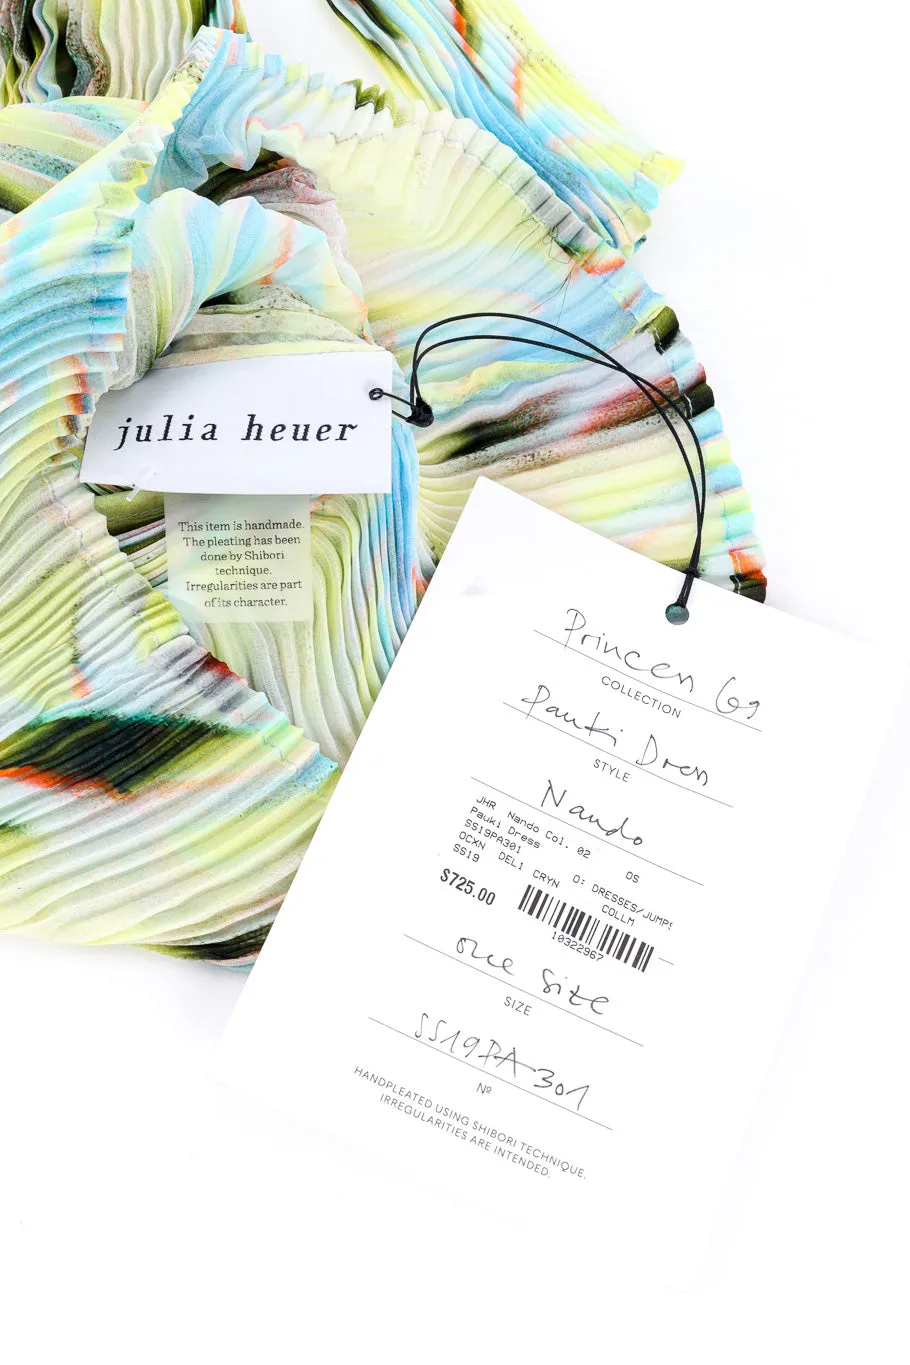 julia heuer
This item is handmade.
The pleating has been
done by Shibori
technique.
Irregularities are part
of its character.
Princess 69
COLLECTION
Pauki Dress
STYLE
Nando
JHR Nando Col. 02
Pauki Dress OS
SS19PA301
OCXN DEL1 O: DRESSES/JUMPS
SS19 CRYN COLLM
$725.00
10322967
one Size
SIZE
SS19PA301
Nº
HANDPLEATED USING SHIBORI TECHNIQUE.
IRREGULARITIES ARE INTENDED.